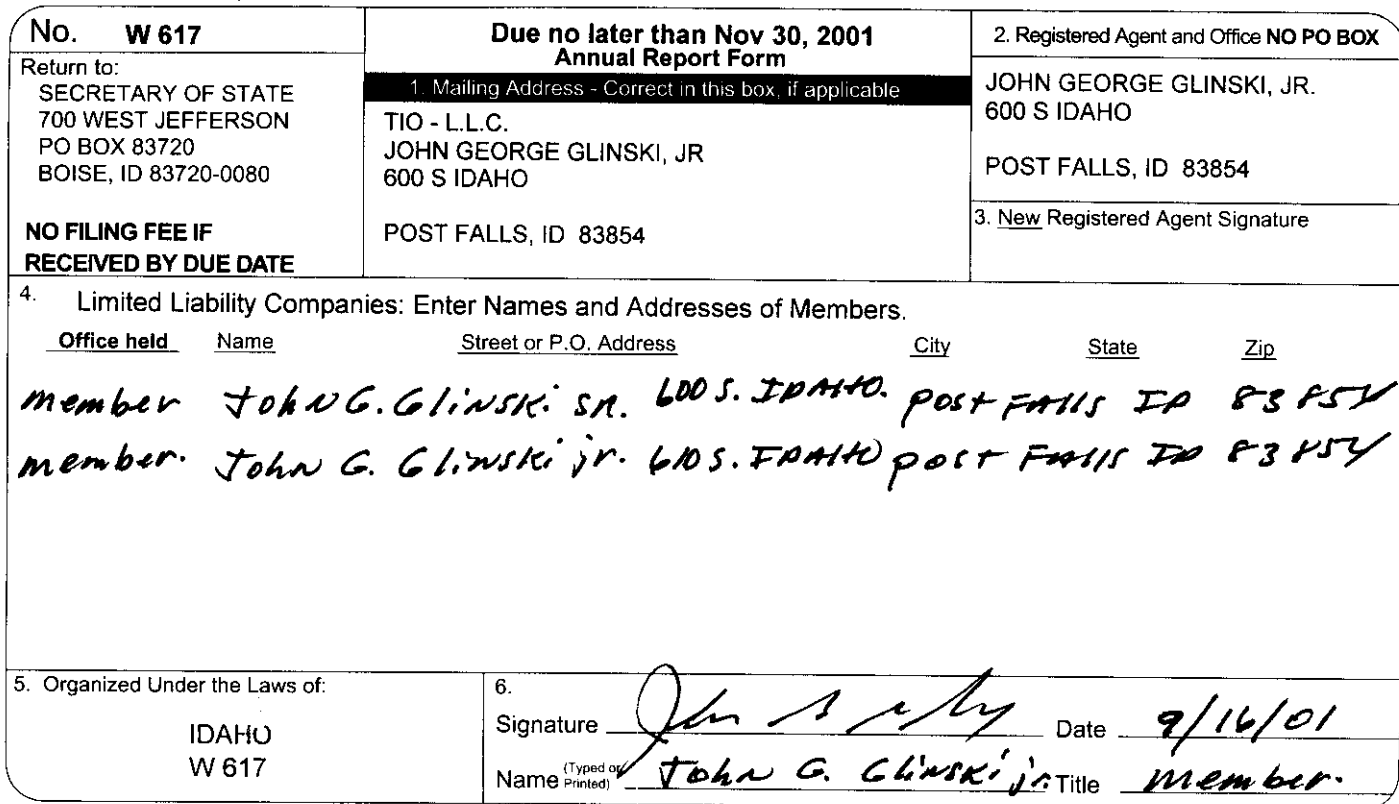 No. W 617
Return to:
SECRETARY OF STATE
700 WEST JEFFERSON
PO BOX 83720
BOISE, ID 83720-0080
NO FILING FEE IF
RECEIVED BY DUE DATE
Due no later than Nov 30, 2001
Annual Report Form
1. Mailing Address - Correct in this box, if applicable
TIO - L.L.C.
JOHN GEORGE GLINSKI, JR
600 S IDAHO
POST FALLS, ID 83854
2. Registered Agent and Office NO PO BOX
JOHN GEORGE GLINSKI, JR.
600 S IDAHO
POST FALLS, ID 83854
3. New Registered Agent Signature
4. Limited Liability Companies: Enter Names and Addresses of Members.
Office held Name Street or P.O. Address City State Zip
member John G. Glinski sr. 600 S. IDAHO. post FAlls ID 83854
member. John G. Glinski jr. 610 S. IDAHO post FAlls ID 83854
5. Organized Under the Laws of:
IDAHO
W 617
6.
Signature Date 9/16/01
Name (Typed or Printed) John G. Glinski jr. Title member.